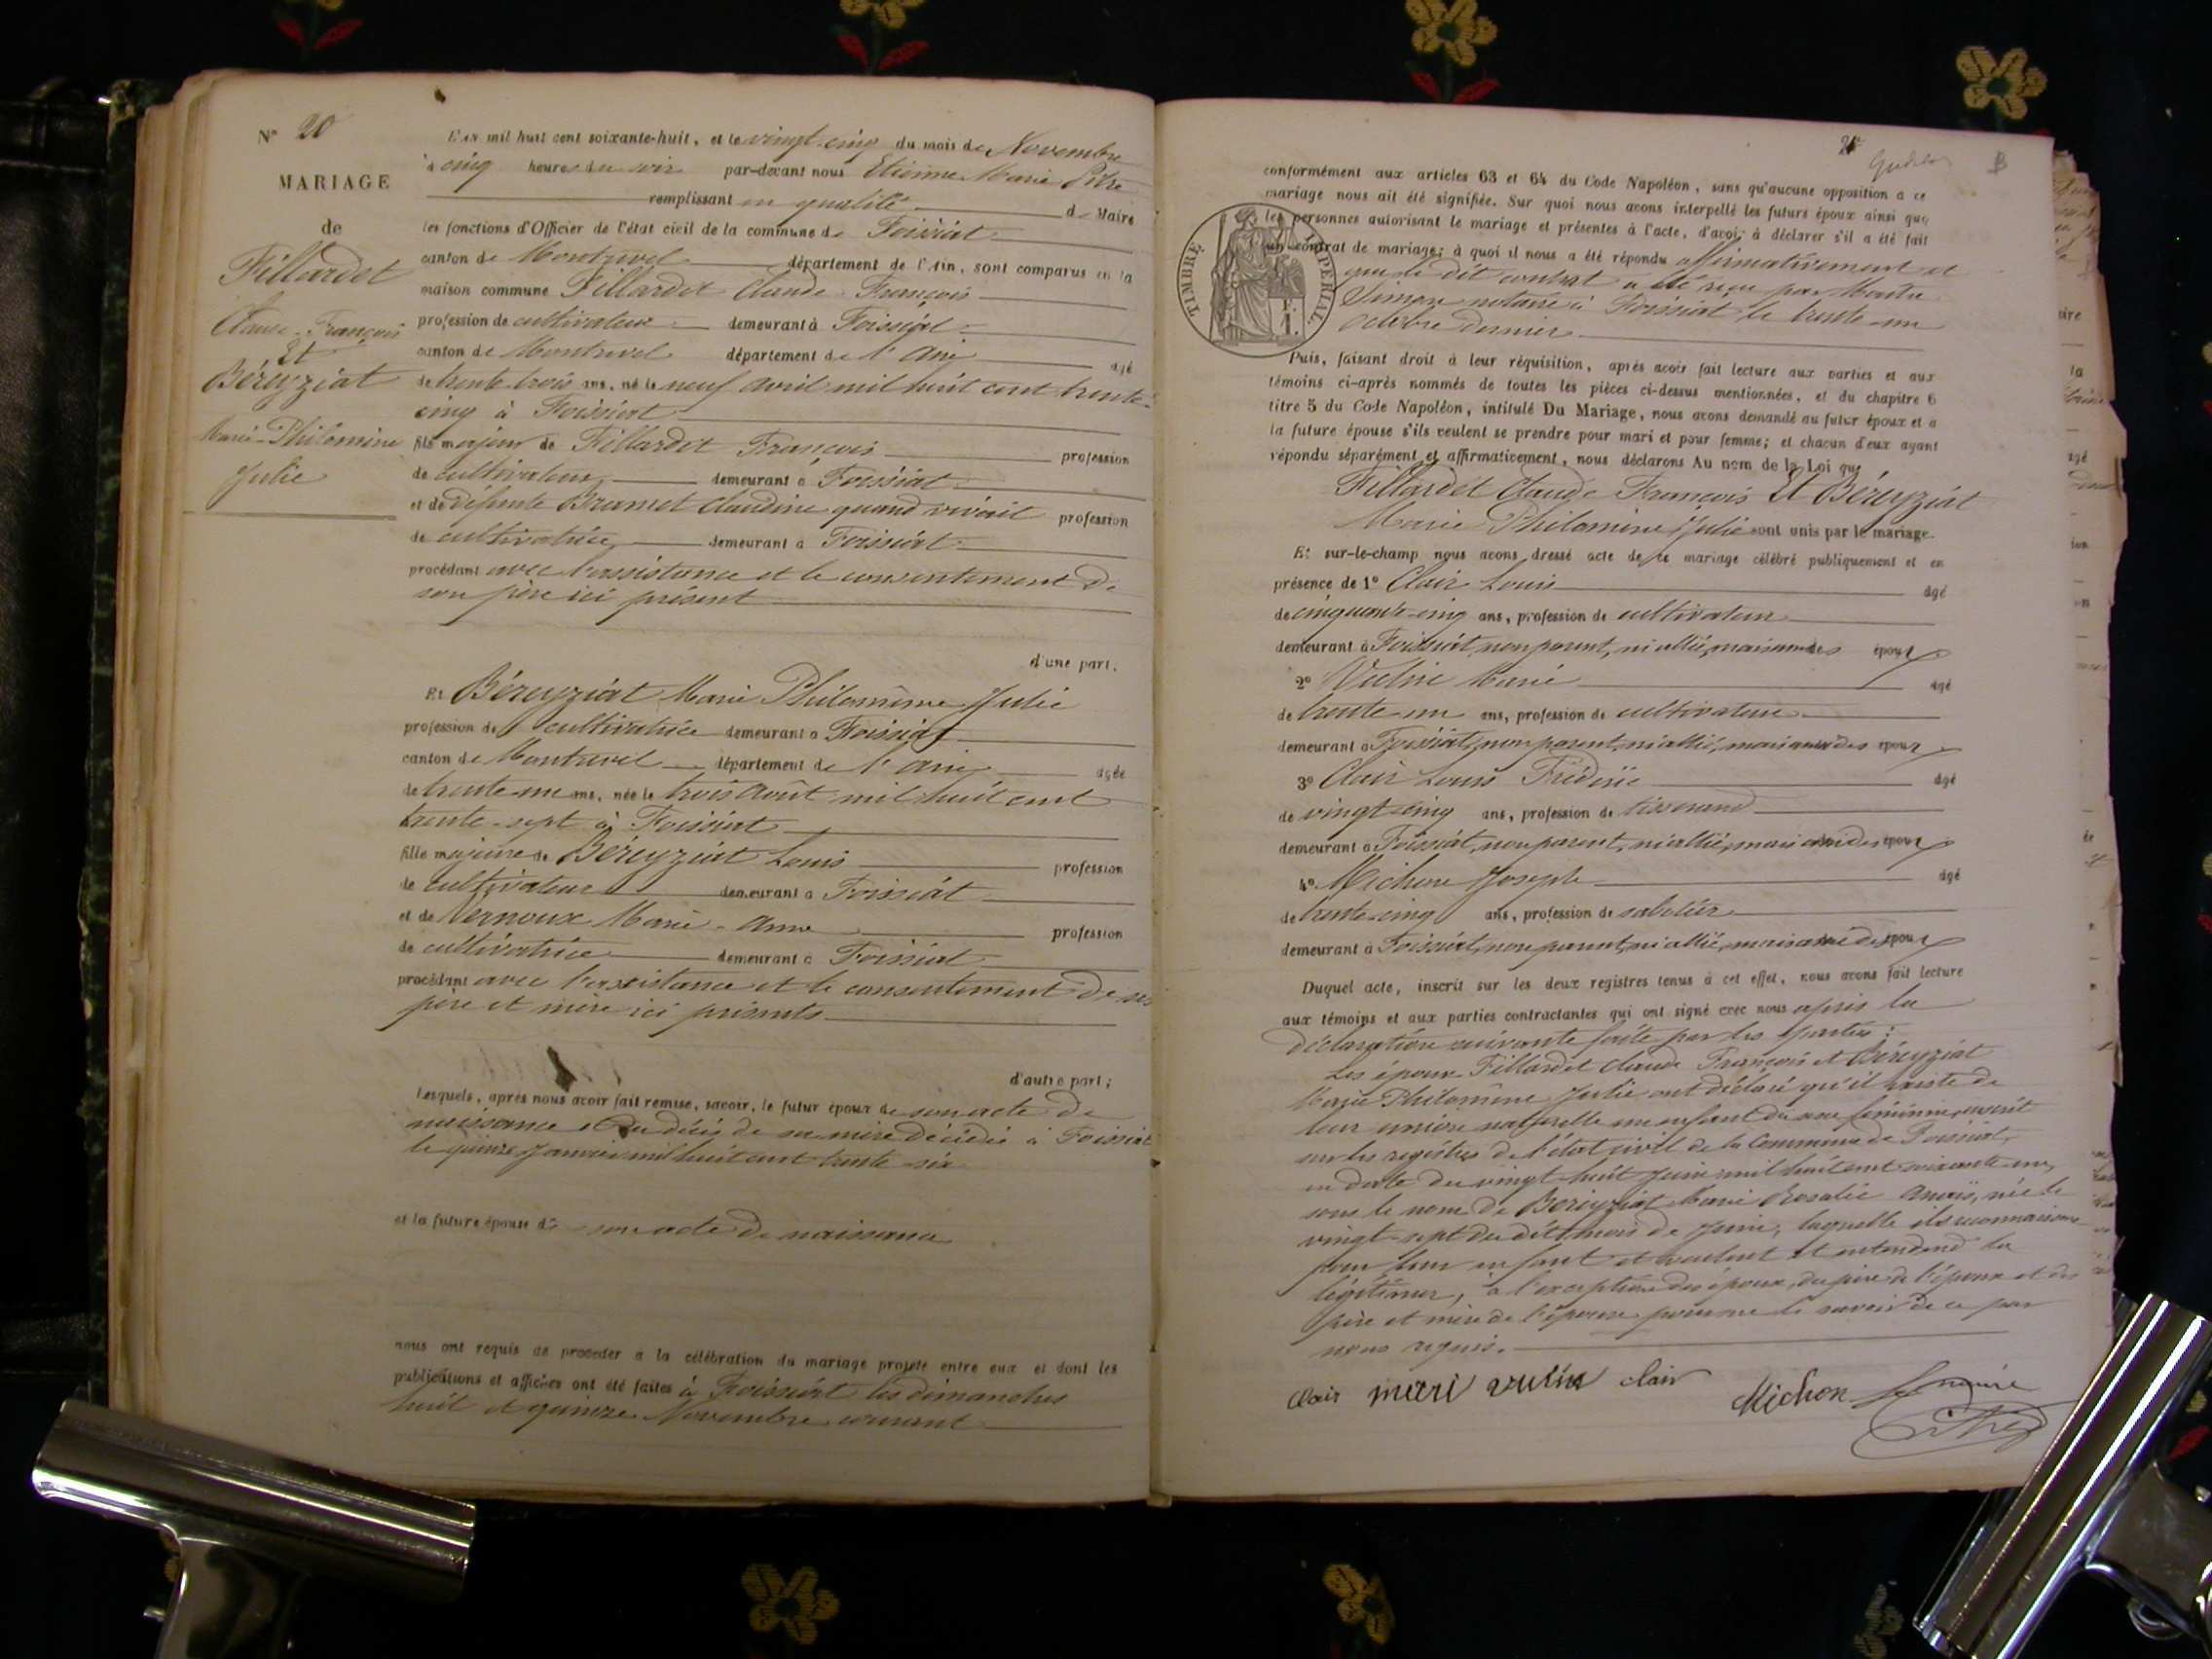 N° 20
MARIAGE
de
Fillardet
Claude-François
Et
Béreyziat
Marie-Philomine
Julie
L'AN mil huit cent soixante-huit, et le vingt-cinq du mois de Novembre
à cinq heures du soir par-devant nous Etienne Marie Pitre
remplissant en qualité de Maire
les fonctions d'Officier de l'état civil de la commune de Foissiat
canton de Montrevel département de l'Ain, sont comparus en la
maison commune Fillardet Claude François
profession de cultivateur demeurant à Foissiat
canton de Montrevel département de l'Ain agé
de trente trois ans, né le neuf avril mil huit cent trente-
cinq à Foissiat
fils majeur de Fillardet François profession
de cultivateur demeurant à Foissiat
et de défunte Bramet Claudine quand vivait profession
de cultivatrice demeurant à Foissiat
procédant avec l'assistance et le consentement de
son père ici présent
d'une part.
Et Béreyziat Marie Philomine Julie
profession de cultivatrice demeurant à Foissiat
canton de Montrevel département de l'Ain agée
de trente-un ans, née le trois Août mil huit cent
trente-sept à Foissiat
fille majeure de Béreyziat Louis profession
de cultivateur demeurant à Foissiat
et de Vernoux Marie-Anne profession
de cultivatrice demeurant à Foissiat
procédant avec l'assistance et le consentement de ses
père et mère ici présents
d'autre part;
Lesquels, après nous avoir fait remise, savoir, le futur époux de son acte de
naissance et du décès de sa mère décédée à Foissiat
le quinze Janvier mil huit cent trente-six
et la future épouse de son acte de naissance
nous ont requis de procéder à la célébration du mariage projeté entre eux et dont les
publications et affiches ont été faites à Foissiat les dimanches
huit et quinze Novembre courant
20
B
conformément aux articles 63 et 64 du Code Napoléon, sans qu'aucune opposition à ce
mariage nous ait été signifiée. Sur quoi nous avons interpellé les futurs époux ainsi que
les personnes autorisant le mariage et présentes à l'acte, d'avoir à déclarer s'il a été fait
un contrat de mariage; à quoi il nous a été répondu affirmativement et
que le dit contrat a été reçu par Maître
Simon notaire à Foissiat le trente-un
octobre dernier
TIMBRE IMPERIAL
1F.
Puis, faisant droit à leur réquisition, après avoir fait lecture aux parties et aux
témoins ci-après nommés de toutes les pièces ci-dessus mentionnées, et du chapitre 6
titre 5 du Code Napoléon, intitulé Du Mariage, nous avons demandé au futur époux et à
la future épouse s'ils veulent se prendre pour mari et pour femme; et chacun d'eux ayant
répondu séparément et affirmativement, nous déclarons Au nom de la Loi que
Fillardet Claude François Et Béreyziat
Marie Philomine Julie sont unis par le mariage.
Et sur-le-champ nous avons dressé acte de ce mariage célébré publiquement et en
présence de 1° Clair Louis agé
de cinquante-cinq ans, profession de cultivateur
demeurant à Foissiat, non parent, ni allié, mais ami des époux
2° Vulin Marie agé
de trente-un ans, profession de cultivateur
demeurant à Foissiat, non parent, ni allié, mais ami des époux
3° Clair Louis Frédéric agé
de vingt-cinq ans, profession de tisserand
demeurant à Foissiat, non parent, ni allié, mais ami des époux
4° Michon Joseph agé
de trente-cinq ans, profession de sabotier
demeurant à Foissiat, non parent, ni allié, mais ami des époux
Duquel acte, inscrit sur les deux registres tenus à cet effet, nous avons fait lecture
aux témoins et aux parties contractantes qui ont signé avec nous après la
déclaration suivante faite par les parties:
Les époux Fillardet Claude François et Béreyziat
Marie Philomine Julie ont déclaré qu'il existe de
leur union naturelle un enfant du sexe féminin, inscrit
sur les registres de l'état civil de la Commune de Foissiat,
en date du vingt-huit Juin mil huit cent soixante-un,
sous le nom de Béreyziat Marie Rosalie Anaïs, née le
vingt-sept du dit mois de Juin, laquelle ils reconnaissent
pour leur enfant et veulent et entendent la
légitimer, à l'exception des époux, du père de l'époux et des
père et mère de l'épouse pour ne le savoir de ce par
nous requis.
Clair mari vulin clair Michon Le maire
Pitre